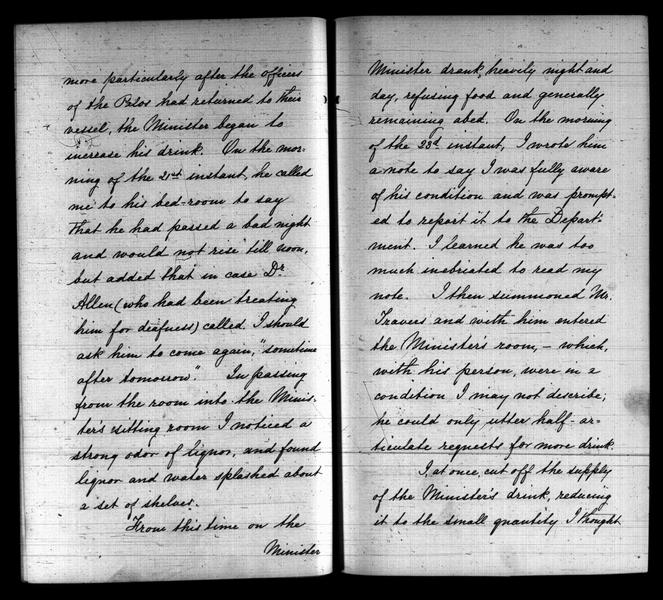 more particularly after the officers
of the Palos had returned to their
vessel, the Minister began to
increase his drink. On the mor-
ning of the 21st instant, he called
me to his bed-room to say
that he had passed a bad night
and would not rise till noon,
but added that in case Dr
Allen (who had been treating
him for deafness) called I should
ask him to come again, "sometime
after tomorrow". In passing
from the room into the Minis-
ter's sitting room I noticed a
strong odor of liquor, and found
liquor and water splashed about
a set of shelves.
From this time on the
Minister
Minister drank, heavily night and
day, refusing food and generally
remaining abed. On the morning
of the 23d instant, I wrote him
a note to say I was fully aware
of his condition and was prompt-
ed to report it to the Depart-
ment. I learned he was too
much inebriated to read my
note. I then summoned Mr.
Travers and with him entered
the Minister's room, - which,
with his person, were in a
condition I may not describe;
he could only utter half-ar-
ticulate requests for more drink.
I, at once, cut off the supply
of the Minister's drink, reducing
it to the small quantity I thought